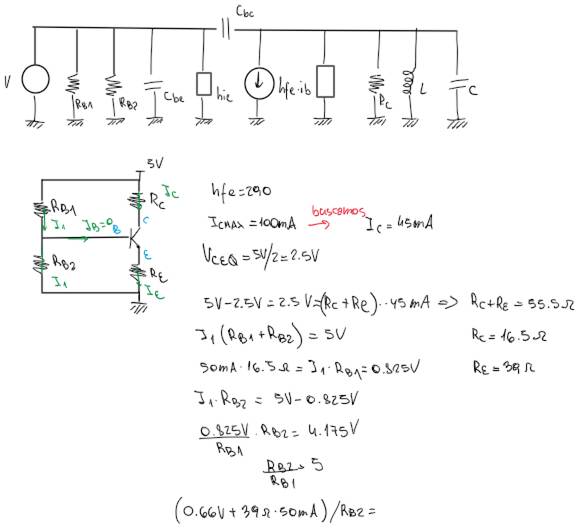 Cbc
V
RB1
RB2
Cbe
hie
hfe·ib
RC
L
C
5V
RC
IC
RB1
I1
IB=0
B
C
E
RB2
I1
RE
IE
hfe=290
ICMAX=100mA
buscamos
IC=45mA
VCEQ=5V/2=2.5V
5V-2.5V=2.5V=(RC+RE)·45mA => RC+RE=55.5Ω
I1(RB1+RB2)=5V
RC=16.5Ω
50mA·16.5Ω=I1·RB1=0.825V
RE=39Ω
I1·RB2=5V-0.825V
0.825V/RB1·RB2=4.175V
RB2/RB1 5
(0.66V+39Ω·50mA)/RB2=